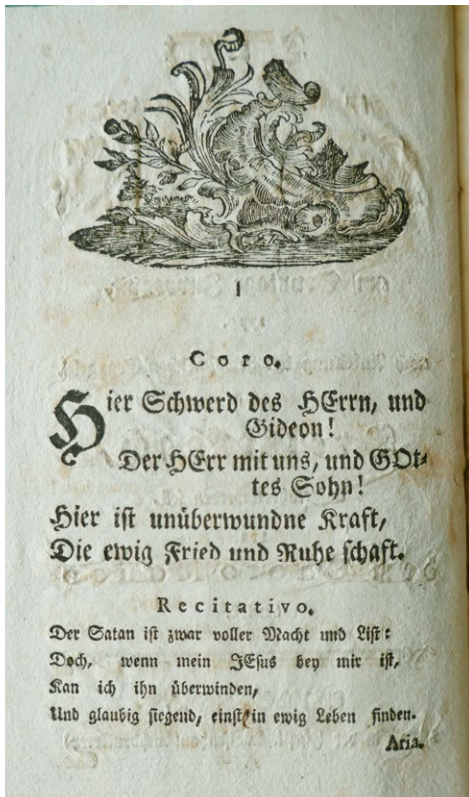 Coro.
Hier Schwerd des HErrn, und
Gideon!
Der HErr mit uns, und GOt-
tes Sohn!
Hier ist unüberwundne Kraft,
Die ewig Fried und Ruhe schaft.
Recitativo.
Der Satan ist zwar voller Macht und List:
Doch, wenn mein JEsus bey mir ist,
Kan ich ihn überwinden,
Und glaubig siegend, einst in ewig Leben finden.
Aria.